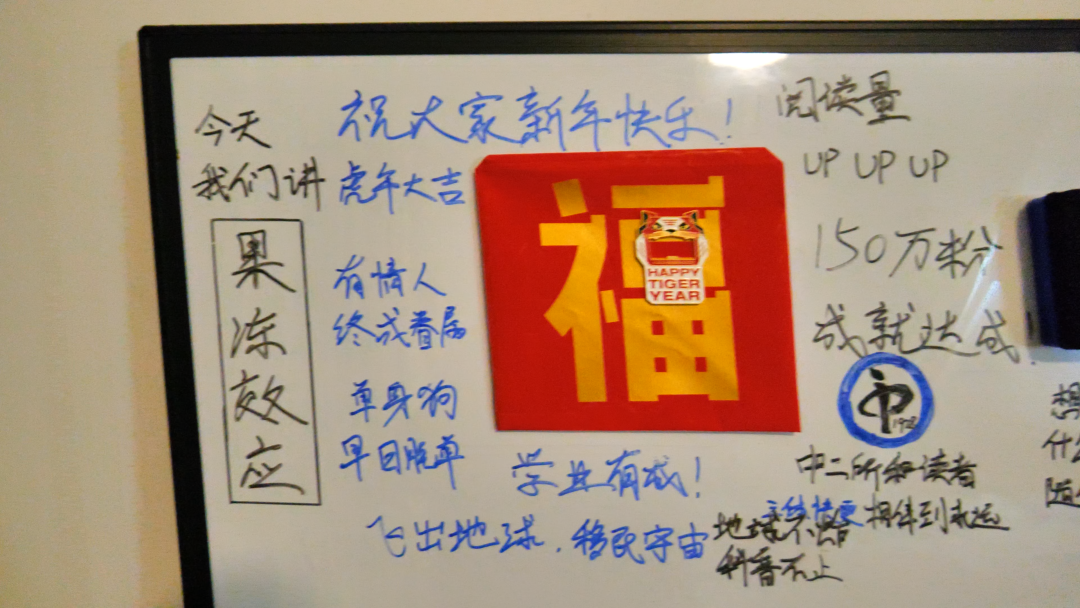 今天
我们讲
果冻效应
祝大家新年快乐!
虎年大吉
有情人
终成眷属
单身狗
早日脱单
学业有成!
飞出地球,移民宇宙
福
HAPPY
TIGER
YEAR
阅读量
UP UP UP
150万粉
成就达成
1928
中二所和读者
相伴到永远
地球不爆
科普不止
想
什么
随